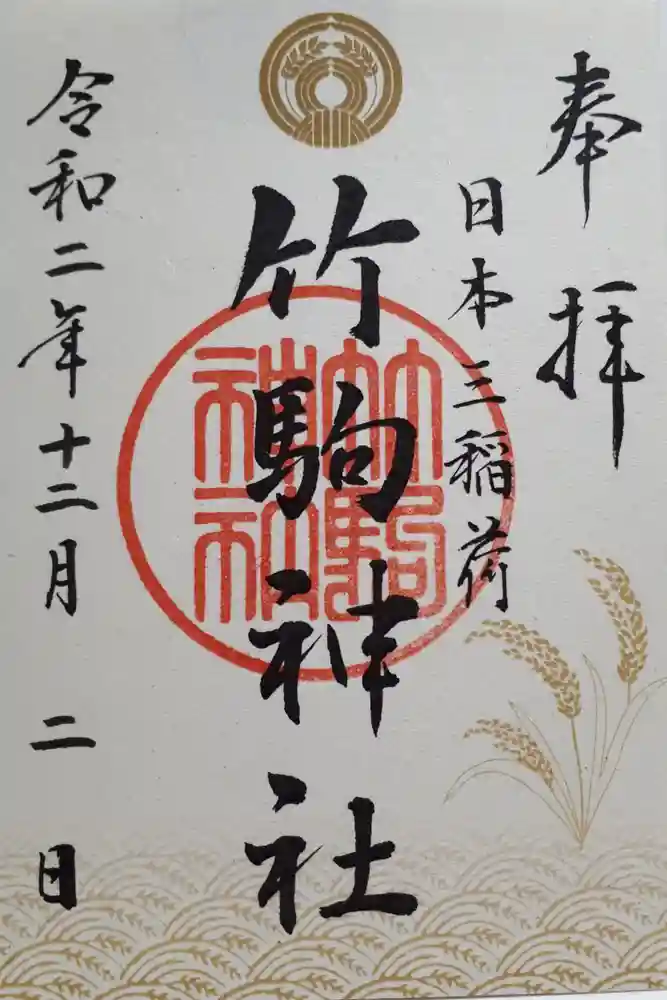 奉拝
日本三稲荷
竹駒神社
竹駒神社
令和二年十二月二日